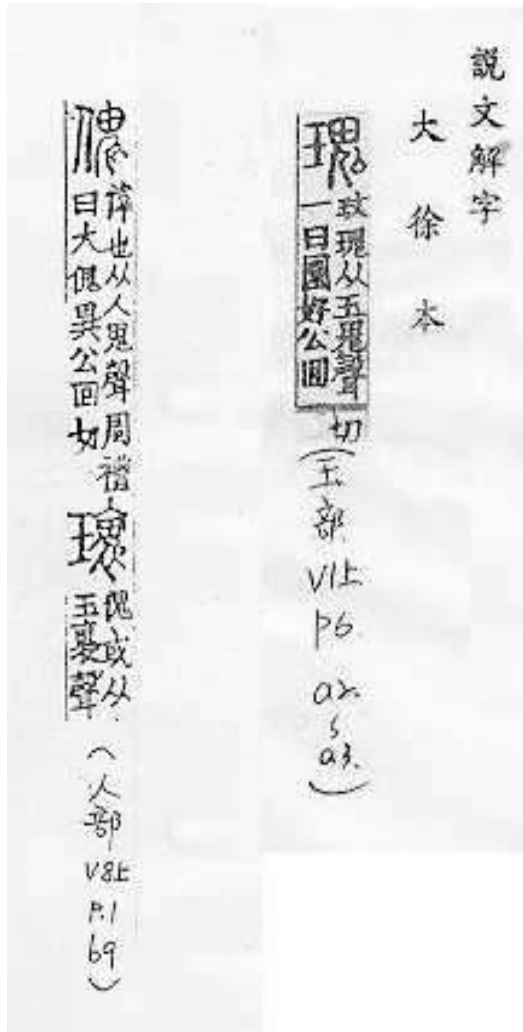 説文解字
大徐本
瑰
玟瑰从玉鬼聲
一曰圜好公回
切
(玉部V1上P6.a2.~a3.)
傀
偉也从人鬼聲周禮
曰大傀異公回切
瓌
傀或从
玉褱聲
(人部V8上P.169)